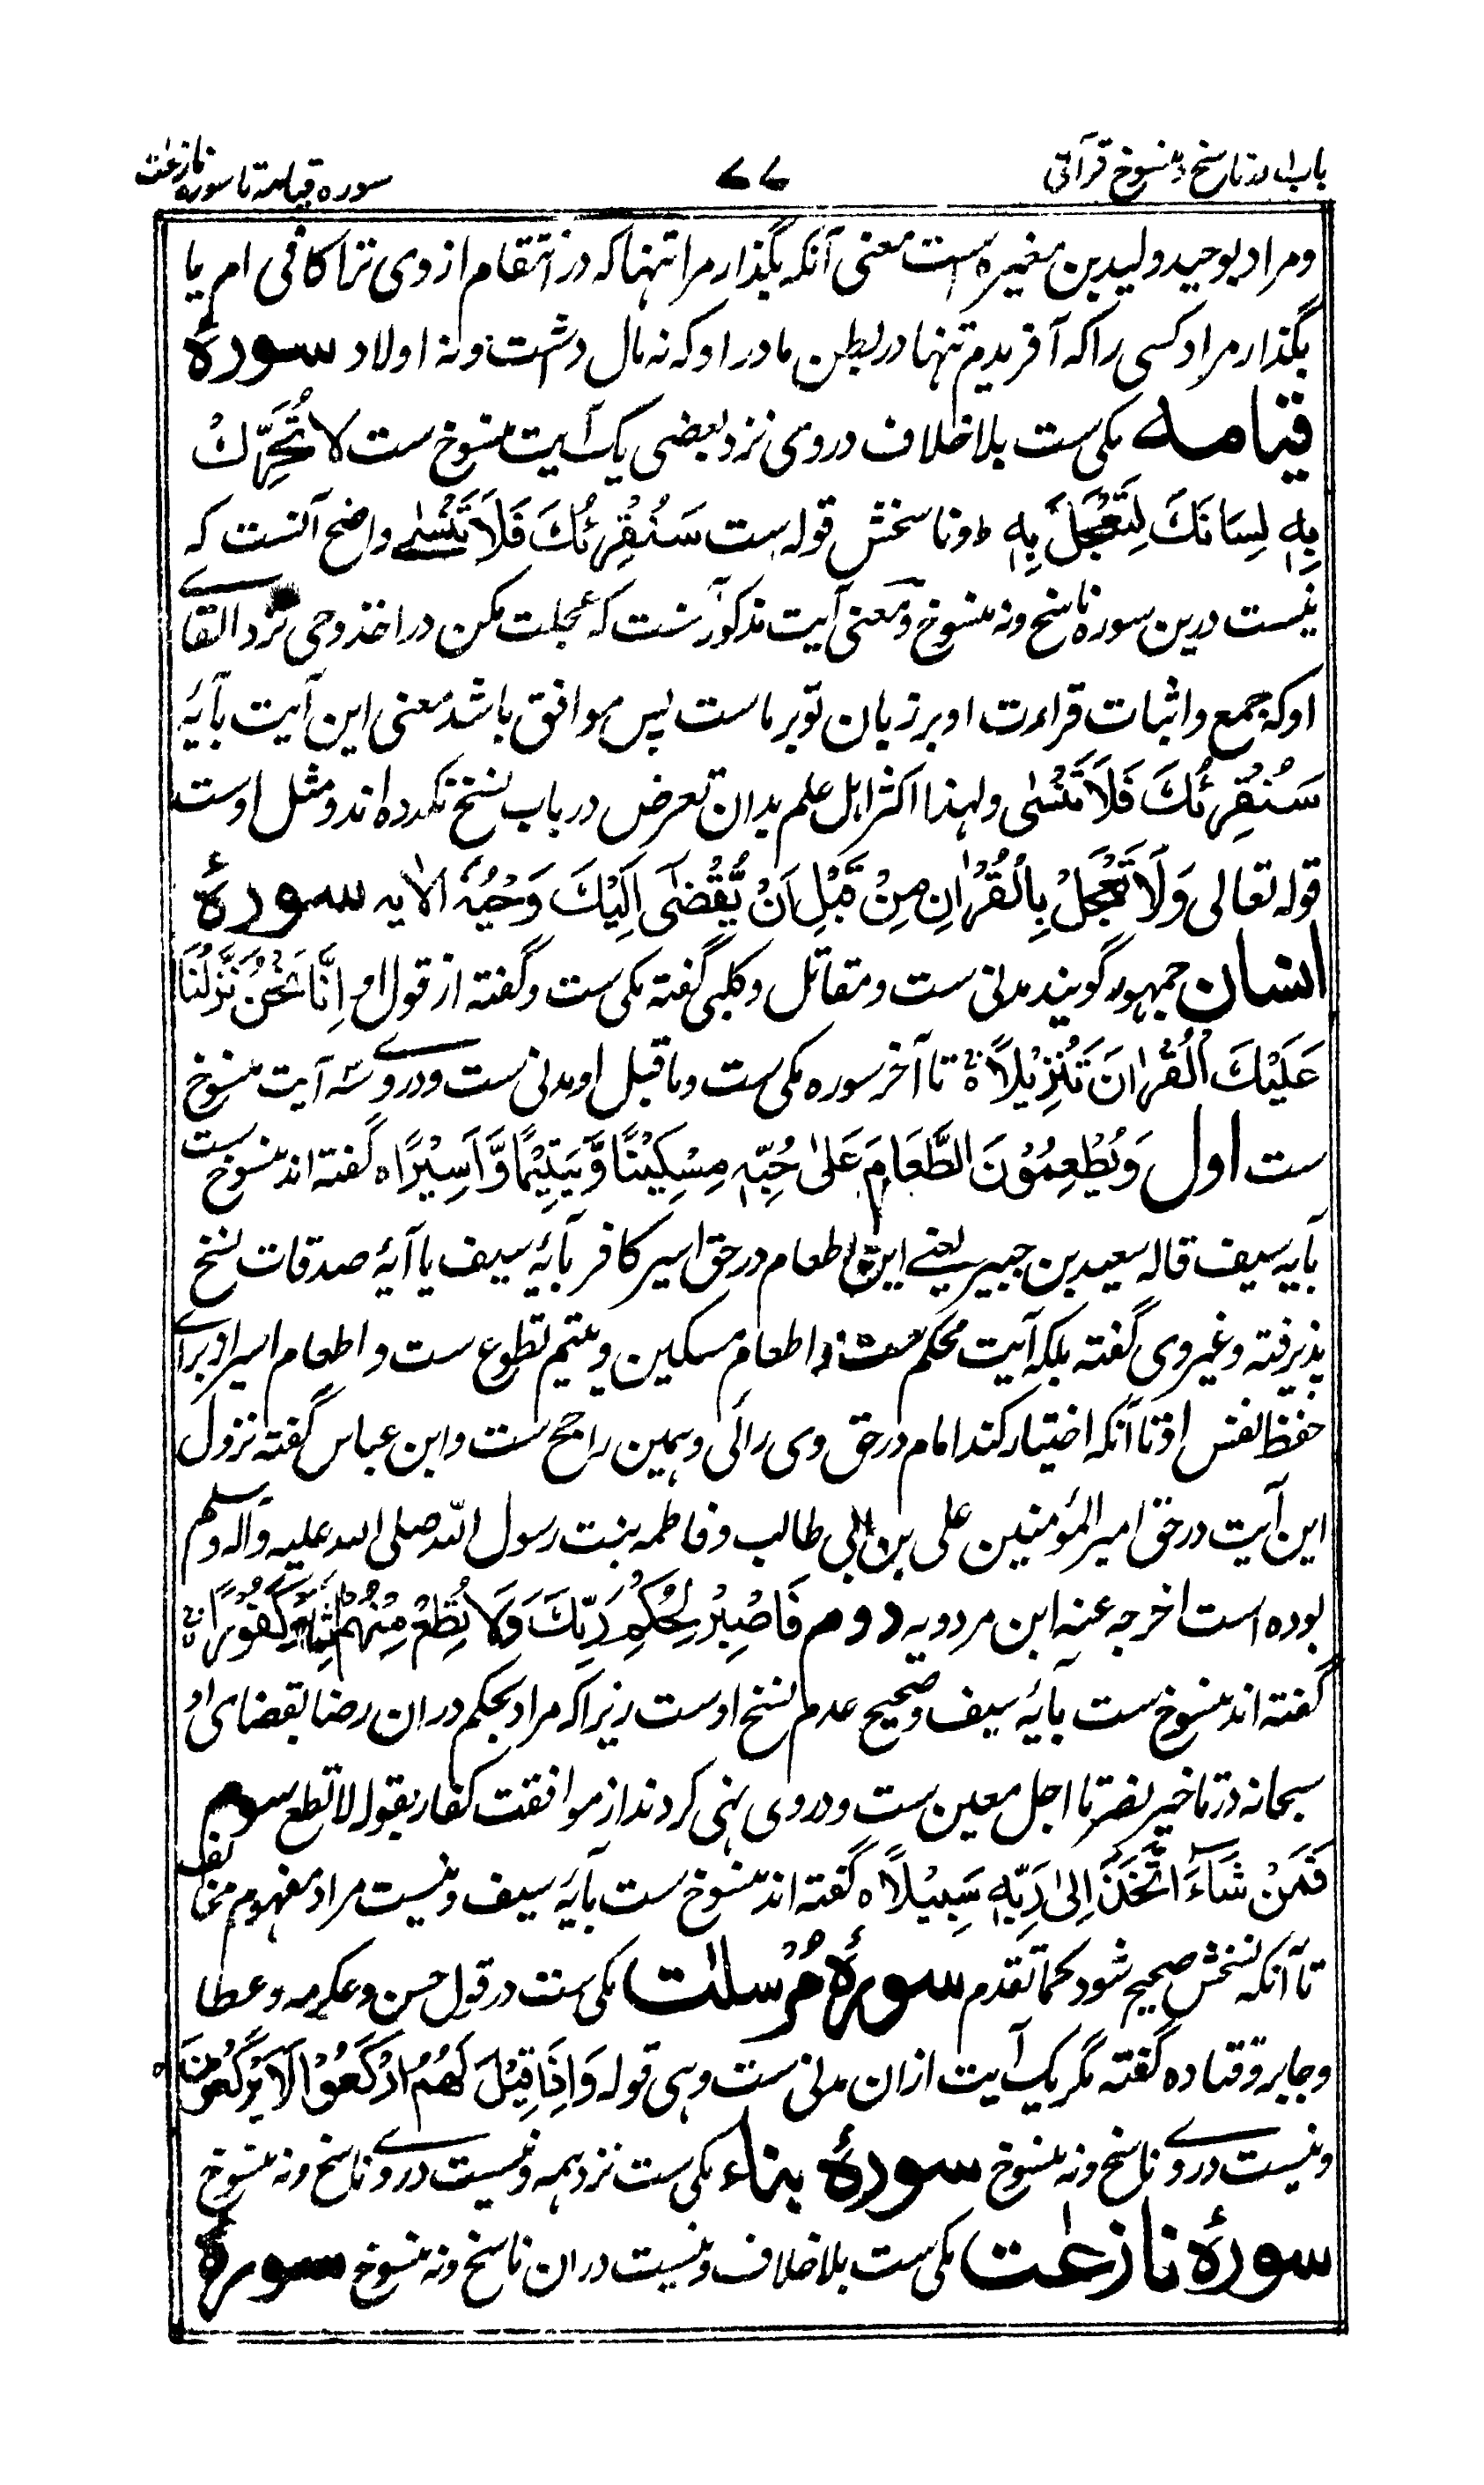 باب اول در ناسخ و منسوخ قرآنی
۷۷
سوره قیامة تا سوره نازعت
ومراد بوحید ولید بن مغیره است معنی آنکه بگذار مرا تنها که در انتقام از وی ترا کافی ام یا
بگذار مرا و کسی را که آفریدم تنها در بطن مادر او که نه مال داشت و نه اولاد سورهٔ
قیامه مکی ست بلا خلاف در وی نزد بعضی یک آیت منسوخ ست لَا تُحَرِّكْ
بِهٖ لِسَانَكَ لِتَعْجَلَ بِهٖ ط و ناسخش قوله ست سَنُقْرِئُكَ فَلَا تَنْسٰى واضح آنست که
نیست درین سوره ناسخ و نه منسوخ و معنی آیت مذکور آنست که عجلت مکن در اخذ وحی نزد القای
او که جمع و اثبات قراءت او بر زبان تو بر ماست پس موافق باشد معنی این آیت بآیهٔ
سَنُقْرِئُكَ فَلَا تَنْسٰى ولهذا اکثر اهل علم بدان تعرض در باب نسخ نکرده اند و مثل اوست
قوله تعالی وَلَا تَعْجَلْ بِالْقُرْاٰنِ مِنْ قَبْلِ اَنْ يُّقْضٰٓى اِلَيْكَ وَحْيُهٗ الایه سورهٔ
انسان جمهور گویند مدنی ست و مقاتل و کلبی گفته مکی ست و گفته از قول او اِنَّا نَحْنُ نَزَّلْنَا
عَلَيْكَ الْقُرْاٰنَ تَنْزِيْلًا ۃ تا آخر سوره مکی ست و ما قبل او مدنی ست و در وی سه آیت منسوخ
ست اول وَيُطْعِمُوْنَ الطَّعَامَ عَلٰى حُبِّهٖ مِسْكِيْنًا وَّيَتِيْمًا وَّاَسِيْرًا ہ گفته اند منسوخ ست
بآیه سیف قاله سعید بن جبیر یعنے این اطعام در حق اسیر کافر بآیهٔ سیف یا آیهٔ صدقات نسخ
پذیرفته و غیر وی گفته بلکه آیت محکم ست و اطعام مسکین و یتیم تطوع ست و اطعام اسیر از برای
حفظ نفس او تا آنکه اختیار کند امام در حق وی رائی و همین راجح ست و ابن عباس گفته نزول
این آیت در حق امیر المؤمنین علی بن ابی طالب و فاطمه بنت رسول الله صلی الله علیه وآله وسلم
بوده است اخرجه عنه ابن مردویه دوم فَاصْبِرْ لِحُكْمِ رَبِّكَ وَلَا تُطِعْ مِنْهُمْ اٰثِمًا اَوْ كَفُوْرًا ۃ
گفته اند منسوخ ست بآیهٔ سیف و صحیح عدم نسخ اوست زیرا که مراد بحکم در ان رضا بقضای او
سبحانه در تاخیر نصر تا اجل معین ست و در وی نهی کردند از موافقت کفار بقوله لا تطع سوم
فَمَنْ شَآءَ اتَّخَذَ اِلٰى رَبِّهٖ سَبِيْلًا ہ گفته اند منسوخ ست بآیهٔ سیف و نیست مراد مفهوم مخالف
تا آنکه نسخش صحیح شود کما تقدم سورهٔ مُرْسلٰت مکی ست در قول حسن و عکرمه و عطا
و جابر و قتاده گفته مگر یک آیت از ان مدنی ست وهی قوله وَاِذَا قِيْلَ لَهُمُ ارْكَعُوْا لَا يَرْكَعُوْنَ ہ
و نیست در وی ناسخ و نه منسوخ سورهٔ بناء مکی ست نزد همه و نیست در وی ناسخ و نه منسوخ
سورهٔ نازعٰت مکی ست بلا خلاف و نیست در ان ناسخ و نه منسوخ سورهٔ